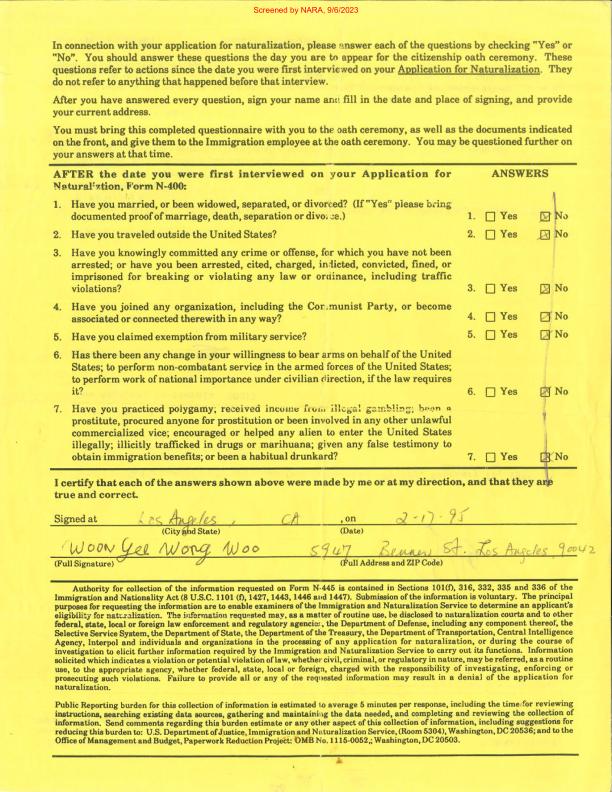 Screened by NARA, 9/6/2023
In connection with your application for naturalization, please answer each of the questions by checking "Yes" or
"No". You should answer these questions the day you are to appear for the citizenship oath ceremony. These
questions refer to actions since the date you were first interviewed on your Application for Naturalization. They
do not refer to anything that happened before that interview.
After you have answered every question, sign your name and fill in the date and place of signing, and provide
your current address.
You must bring this completed questionnaire with you to the oath ceremony, as well as the documents indicated
on the front, and give them to the Immigration employee at the oath ceremony. You may be questioned further on
your answers at that time.
AFTER the date you were first interviewed on your Application for ANSWERS
Naturalization, Form N-400:
1. Have you married, or been widowed, separated, or divorced? (If "Yes" please bring
documented proof of marriage, death, separation or divorce.) 1. ☐ Yes ☒ No
2. Have you traveled outside the United States? 2. ☐ Yes ☒ No
3. Have you knowingly committed any crime or offense, for which you have not been
arrested; or have you been arrested, cited, charged, indicted, convicted, fined, or
imprisoned for breaking or violating any law or ordinance, including traffic
violations? 3. ☐ Yes ☒ No
4. Have you joined any organization, including the Communist Party, or become
associated or connected therewith in any way? 4. ☐ Yes ☒ No
5. Have you claimed exemption from military service? 5. ☐ Yes ☒ No
6. Has there been any change in your willingness to bear arms on behalf of the United
States; to perform non-combatant service in the armed forces of the United States;
to perform work of national importance under civilian direction, if the law requires
it? 6. ☐ Yes ☒ No
7. Have you practiced polygamy; received income from illegal gambling; been a
prostitute, procured anyone for prostitution or been involved in any other unlawful
commercialized vice; encouraged or helped any alien to enter the United States
illegally; illicitly trafficked in drugs or marihuana; given any false testimony to
obtain immigration benefits; or been a habitual drunkard? 7. ☐ Yes ☒ No
I certify that each of the answers shown above were made by me or at my direction, and that they are
true and correct.
Signed at Los Angeles, CA , on 2-17-95
(City and State) (Date)
Woon Yee Wong Woo 5947 St. Los Angeles, 90042
(Full Signature) (Full Address and ZIP Code)
Authority for collection of the information requested on Form N-445 is contained in Sections 101(f), 316, 332, 335 and 336 of the
Immigration and Nationality Act (8 U.S.C. 1101 (f), 1427, 1443, 1446 and 1447). Submission of the information is voluntary. The principal
purposes for requesting the information are to enable examiners of the Immigration and Naturalization Service to determine an applicant's
eligibility for naturalization. The information requested may, as a matter of routine use, be disclosed to naturalization courts and to other
federal, state, local or foreign law enforcement and regulatory agencies, the Department of Defense, including any component thereof, the
Selective Service System, the Department of State, the Department of the Treasury, the Department of Transportation, Central Intelligence
Agency, Interpol and individuals and organizations in the processing of any application for naturalization, or during the course of
investigation to elicit further information required by the Immigration and Naturalization Service to carry out its functions. Information
solicited which indicates a violation or potential violation of law, whether civil, criminal, or regulatory in nature, may be referred, as a routine
use, to the appropriate agency, whether federal, state, local or foreign, charged with the responsibility of investigating, enforcing or
prosecuting such violations. Failure to provide all or any of the requested information may result in a denial of the application for
naturalization.
Public Reporting burden for this collection of information is estimated to average 5 minutes per response, including the time for reviewing
instructions, searching existing data sources, gathering and maintaining the data needed, and completing and reviewing the collection of
information. Send comments regarding this burden estimate or any other aspect of this collection of information, including suggestions for
reducing this burden to: U.S. Department of Justice, Immigration and Naturalization Service, (Room 5304), Washington, DC 20536; and to the
Office of Management and Budget, Paperwork Reduction Project: OMB No. 1115-0052,; Washington, DC 20503.